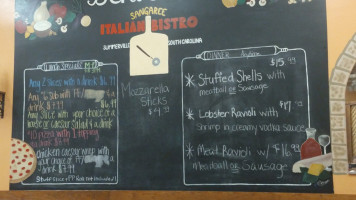 SANGAREE
ITALIAN BISTRO
SUMMERVILLE SOUTH CAROLINA
Lunch Specials
Any 2 slices with a drink $6.99
Any 6" sub with
drink $7.99
Any slice with your choice of a
Caesar Salad & a drink
10" pizza with 1 topping
a drink
chicken caesar wrap with
your choice of
drink $7.99
Mozzarella
Sticks
$4.99
DINNER
$15
* Stuffed Shells with
meatball or Sausage
* Lobster Ravioli with $17
Shrimp in creamy vodka sauce
* Meat Ravioli w/ $16
Meatball or Sausage